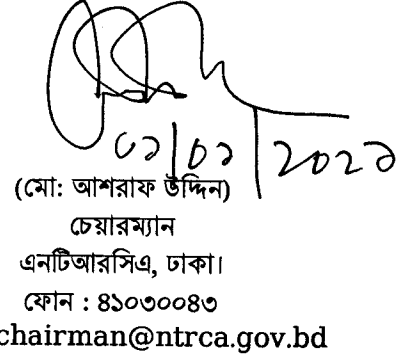 (মো: আশরাফ উদ্দিন)
চেয়ারম্যান
এনটিআরসিএ, ঢাকা।
ফোন : ৪১০৩০০৪৩
chairman@ntrca.gov.bd